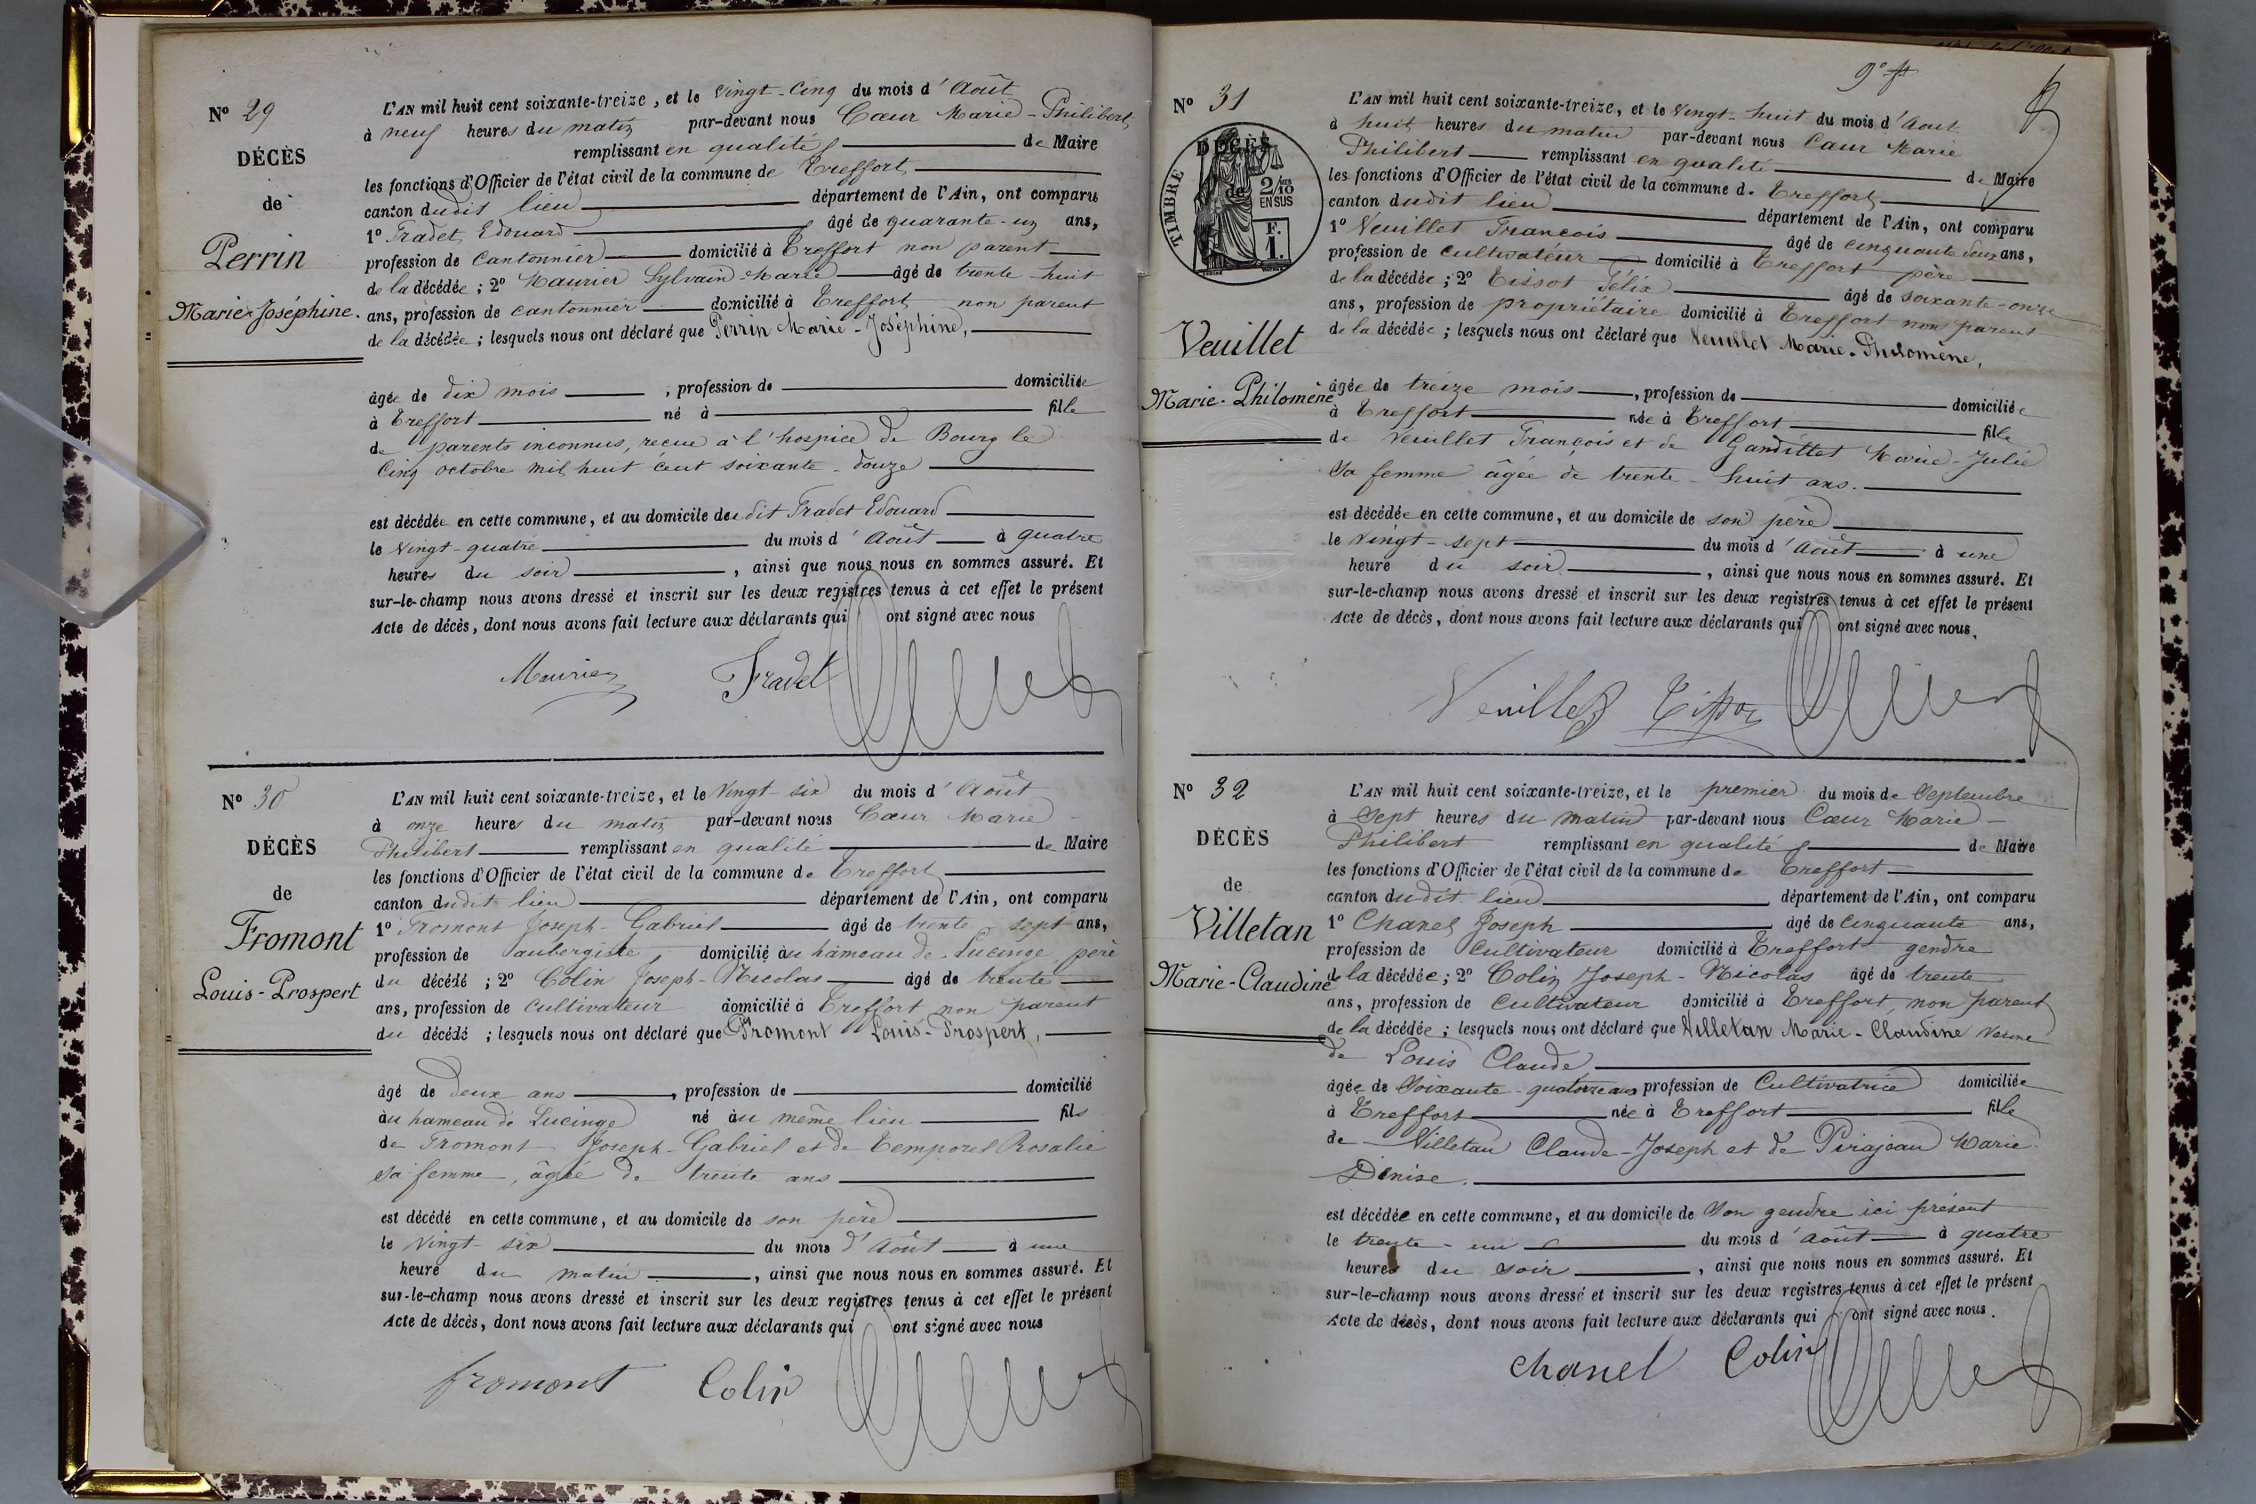 Nº 29
DÉCÈS
de
Perrin
Marie-Joséphine.
L'AN mil huit cent soixante-treize, et le vingt-cinq du mois d'Août
à neuf heures du matin par-devant nous Cœur Marie-Philibert
remplissant en qualité de Maire
les fonctions d'Officier de l'état civil de la commune de Treffort
canton dudit lieu département de l'Ain, ont comparu
1º Fradet Edouard âgé de quarante-un ans,
profession de cantonnier domicilié à Treffort non parent
de la décédée ; 2º Maurier Sylvain-Marie âgé de trente-huit
ans, profession de cantonnier domicilié à Treffort non parent
de la décédée ; lesquels nous ont déclaré que Perrin Marie-Joséphine,
âgée de dix mois , profession de domiciliée
à Treffort né à fille
de parents inconnus, reçue à l'hospice de Bourg le
cinq octobre mil huit cent soixante-douze
est décédée en cette commune, et au domicile dudit Fradet Edouard
le vingt-quatre du mois d'Août à quatre
heures du soir , ainsi que nous nous en sommes assuré. Et
sur-le-champ nous avons dressé et inscrit sur les deux registres tenus à cet effet le présent
Acte de décès, dont nous avons fait lecture aux déclarants qui ont signé avec nous
Maurier Fradet
Nº 30
DÉCÈS
de
Fromont
Louis-Prospert
L'AN mil huit cent soixante-treize, et le Vingt-six du mois d'Août
à onze heures du matin par-devant nous Cœur Marie-
Philibert remplissant en qualité de Maire
les fonctions d'Officier de l'état civil de la commune de Treffort
canton dudit lieu département de l'Ain, ont comparu
1º Fromont Joseph-Gabriel âgé de trente-sept ans,
profession de aubergiste, domicilié au hameau de Lucinge, père
du décédé ; 2º Colin Joseph-Nicolas âgé de trente
ans, profession de cultivateur domicilié à Treffort non parent
du décédé ; lesquels nous ont déclaré que Fromont Louis-Prospert,
âgé de deux ans , profession de domicilié
au hameau de Lucinge né au même lieu fils
de Fromont Joseph-Gabriel et de Temporel Rosalie
sa femme, âgée de trente ans
est décédé en cette commune, et au domicile de son père
le Vingt-six du mois d'Août à une
heure du matin , ainsi que nous nous en sommes assuré. Et
sur-le-champ nous avons dressé et inscrit sur les deux registres tenus à cet effet le présent
Acte de décès, dont nous avons fait lecture aux déclarants qui ont signé avec nous
fromont Colin
9º ft
Nº 31
DÉCÈS
de
TIMBRE
2/10
EN SUS
F.
1.
Veuillet
Marie-Philomène
L'AN mil huit cent soixante-treize, et le Vingt-huit du mois d'Août
à huit heures du matin par-devant nous Cœur Marie
Philibert remplissant en qualité de Maire
les fonctions d'Officier de l'état civil de la commune de Treffort
canton dudit lieu département de l'Ain, ont comparu
1º Veuillet François âgé de cinquante deux ans,
profession de cultivateur domicilié à Treffort père
de la décédée ; 2º Tissot Félix âgé de soixante-onze
ans, profession de propriétaire domicilié à Treffort non parent
de la décédée ; lesquels nous ont déclaré que Veuillet Marie-Philomène,
âgée de treize mois , profession de domiciliée
à Treffort née à Treffort fille
de Veuillet François et de Gandillet Marie-Julie
sa femme âgée de trente-huit ans.
est décédée en cette commune, et au domicile de son père
le Vingt-sept du mois d'Août à une
heure du soir , ainsi que nous nous en sommes assuré. Et
sur-le-champ nous avons dressé et inscrit sur les deux registres tenus à cet effet le présent
Acte de décès, dont nous avons fait lecture aux déclarants qui ont signé avec nous.
Veuillet Tissot
Nº 32
DÉCÈS
de
Villetan
Marie-Claudine
L'AN mil huit cent soixante-treize, et le premier du mois de Septembre
à Sept heures du matin par-devant nous Cœur Marie-
Philibert remplissant en qualité de Maire
les fonctions d'Officier de l'état civil de la commune de Treffort
canton dudit lieu département de l'Ain, ont comparu
1º Chanel Joseph âgé de cinquante ans,
profession de cultivateur domicilié à Treffort gendre
de la décédée ; 2º Colin Joseph-Nicolas âgé de trente
ans, profession de Cultivateur domicilié à Treffort, non parent
de la décédée ; lesquels nous ont déclaré que Villetan Marie-Claudine veuve
de Louis Claude,
âgée de Soixante-quatorze ans profession de Cultivatrice domiciliée
à Treffort née à Treffort fille
de Villetan Claude-Joseph et de Pirajean Marie
Denise.
est décédée en cette commune, et au domicile de Son gendre ici présent
le trente-un du mois d'Août à quatre
heures du soir , ainsi que nous nous en sommes assuré. Et
sur-le-champ nous avons dressé et inscrit sur les deux registres tenus à cet effet le présent
Acte de décès, dont nous avons fait lecture aux déclarants qui ont signé avec nous.
chanel Colin